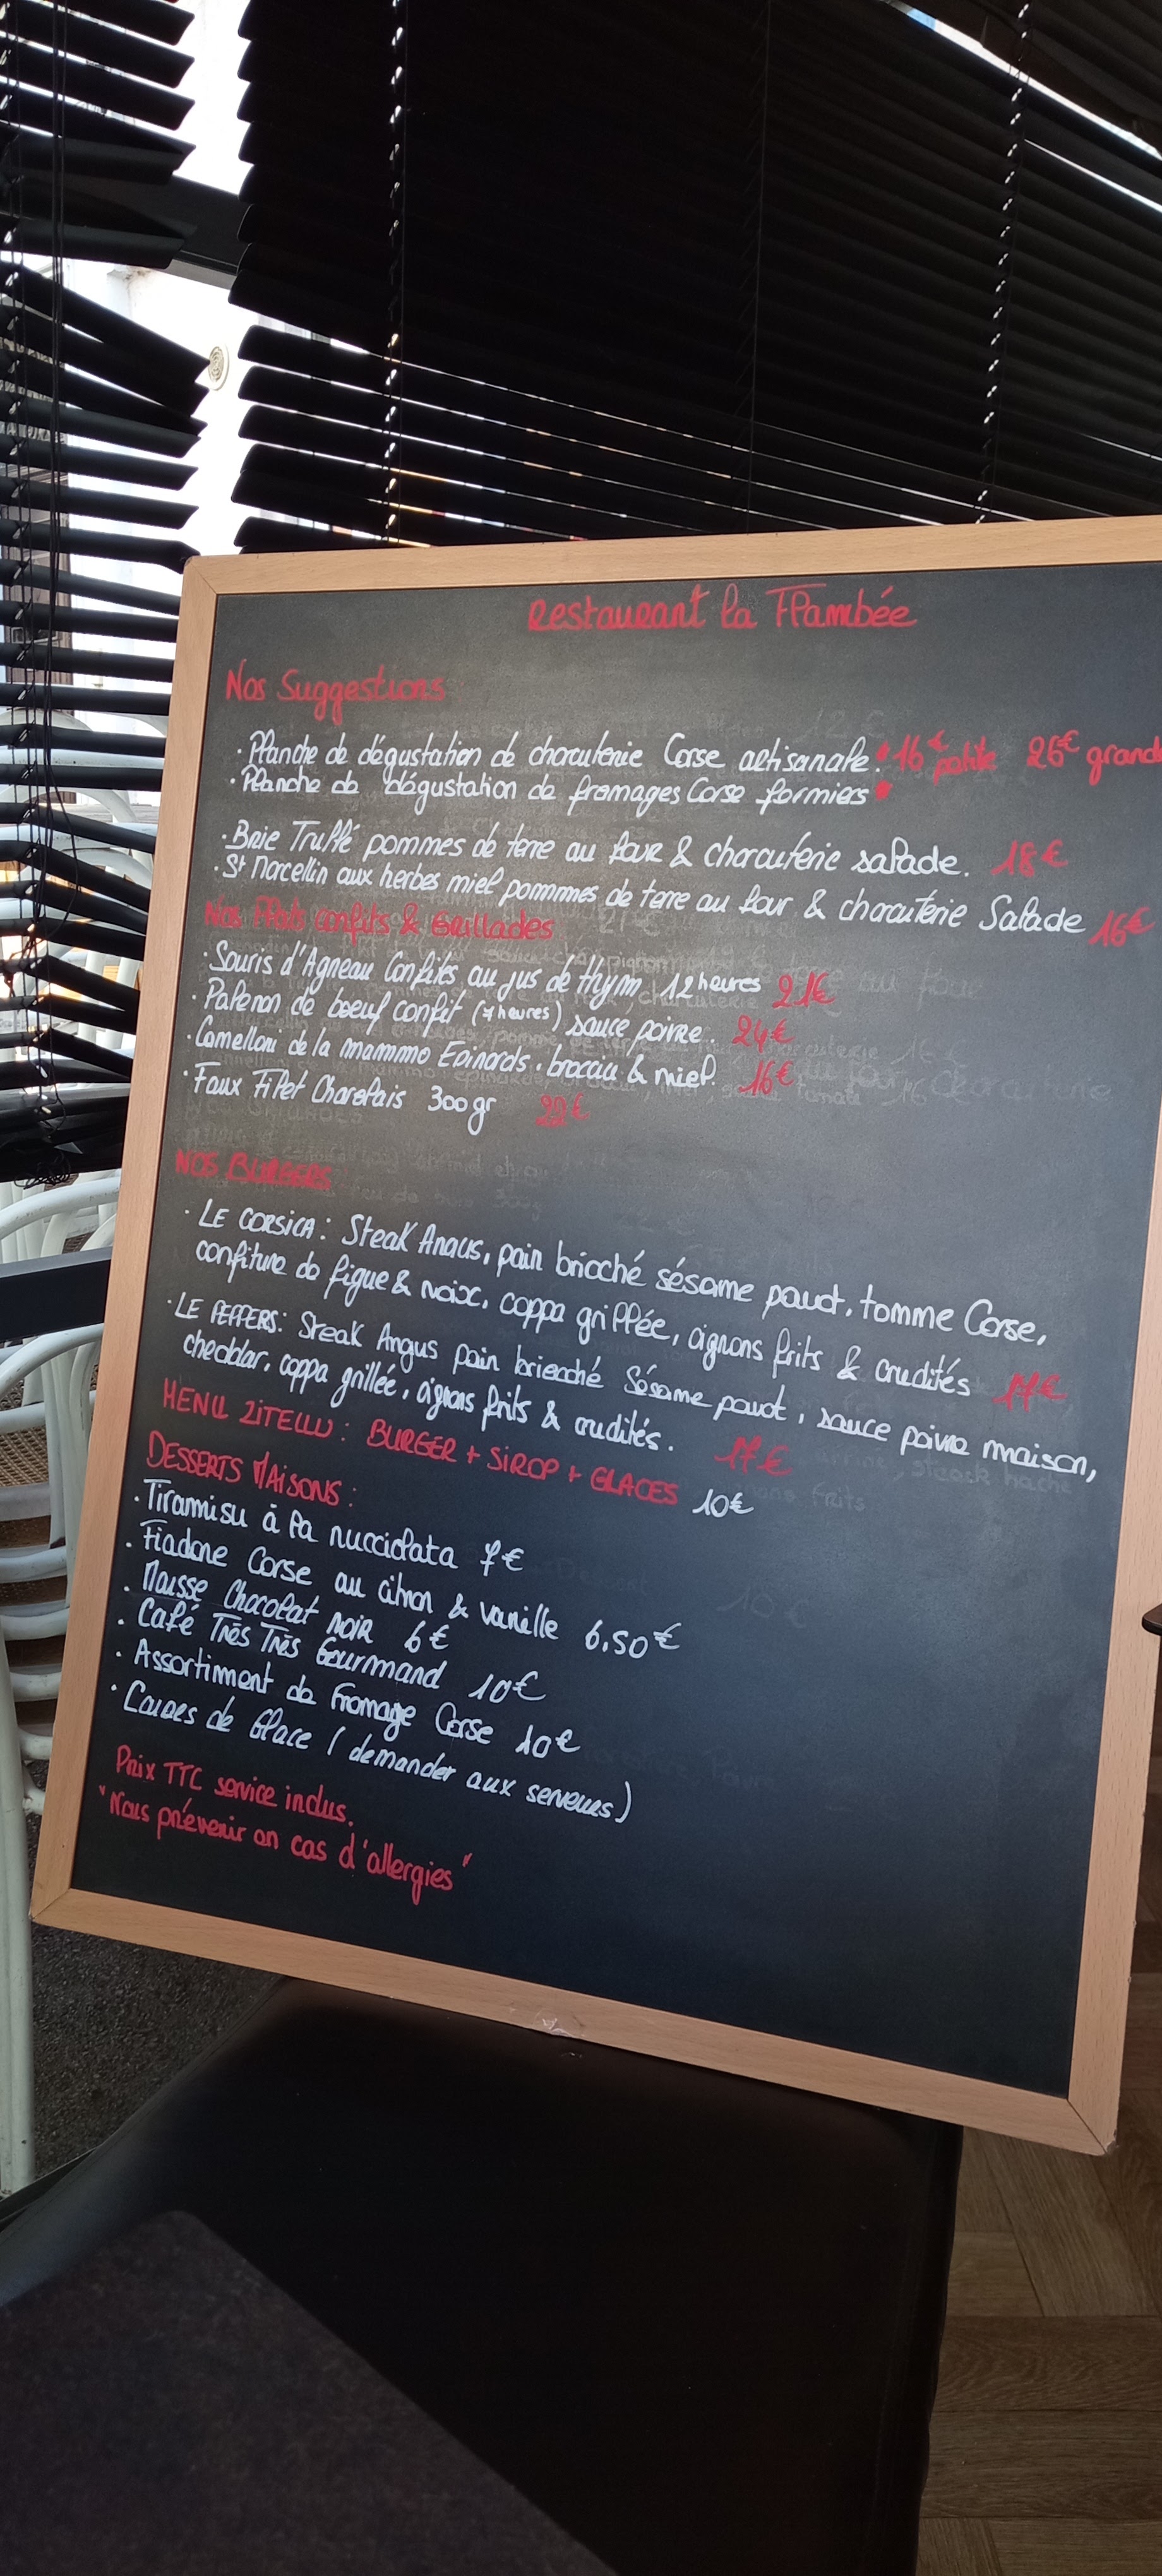 Restaurant la Flambée
Nos Suggestions
· Planche de dégustation de charcuterie Corse artisanale. 16€ petite 26€ grand
· Planche de dégustation de fromages Corse fermiers
· Brie Truffé pommes de terre au four & charcuterie salade. 18€
· St Marcellin aux herbes miel pommmes de terre au four & charcuterie Salade 16€
Nos Plats confits & Grillades
· Souris d'Agneau Confites au jus de thym 12 heures 21€
· Paleron de boeuf confit (7 heures) sauce poivre. 24€
· Cannelloni de la mamma Epinards, brocciu & miel. 16€
· Faux Filet Charolais 300gr
NOS BURGERS
· LE CORSICA: Steak Angus, pain brioché sésame pavot, tomme Corse,
confiture de figue & noix, coppa grillée, oignons frits & crudités 17€
· LE PEPPERS: Steak Angus pain brioché Sésame pavot, sauce poivre maison,
cheddar, coppa grillée, oignons frits & crudités. 17€
MENU ZITELLU: BURGER + SIROP + GLACES 10€
DESSERTS MAISONS:
· Tiramisu à la nucciolata 7€
· Fiadone Corse au citron & vanille 6.50€
· Mousse Chocolat noir 6€
· Café Très Très Gourmand 10€
· Assortiment de Fromage Corse 10€
· Coupes de Glace (demander aux serveurs)
Prix TTC service inclus.
"Nous prévenir en cas d'allergies"